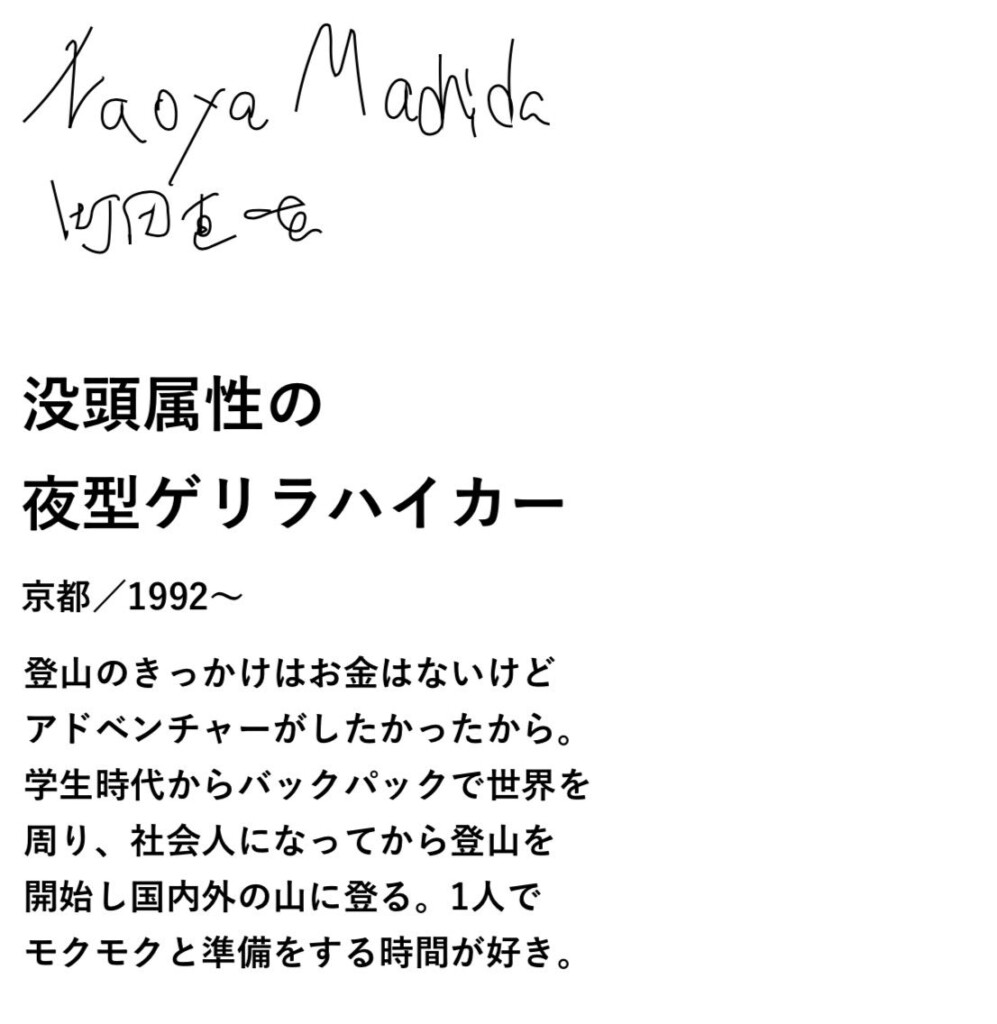 Naoya Machida
町田直也
没頭属性の
夜型ゲリラハイカー
京都／1992〜
登山のきっかけはお金はないけど
アドベンチャーがしたかったから。
学生時代からバックパックで世界を
周り、社会人になってから登山を
開始し国内外の山に登る。1人で
モクモクと準備をする時間が好き。